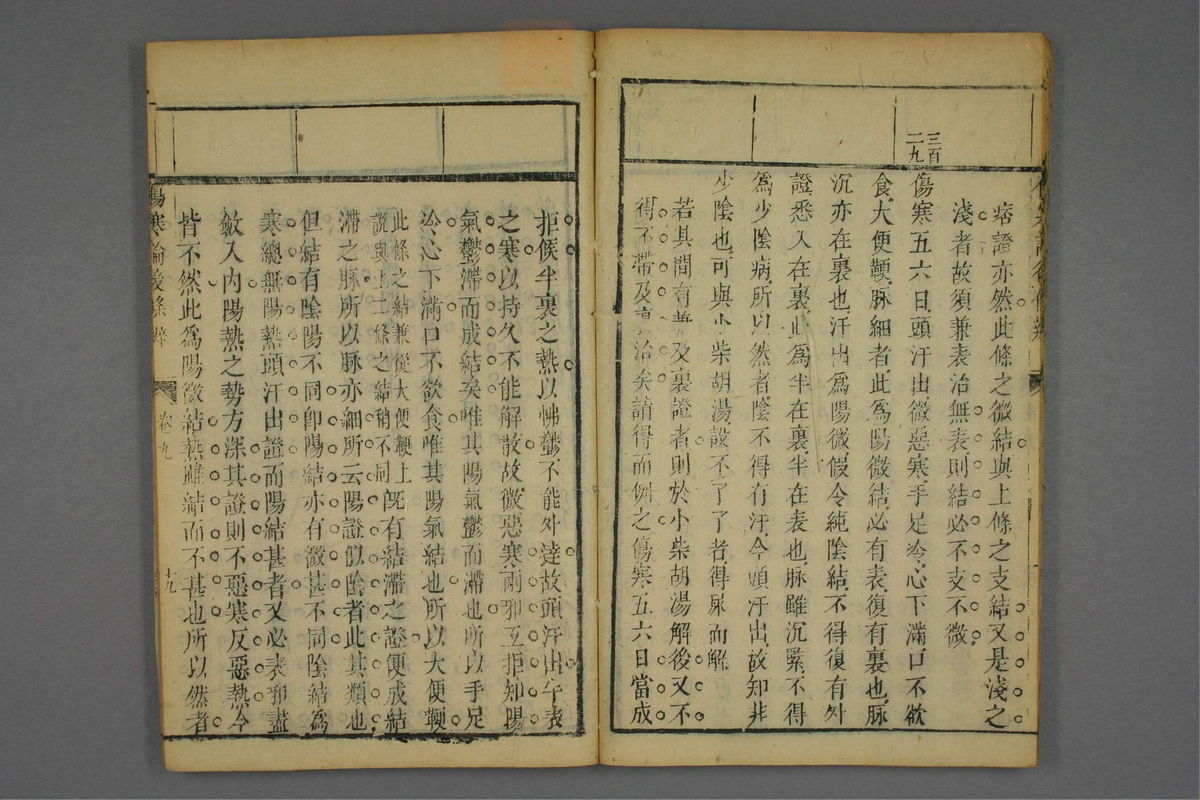 痞證亦然此條之微結與上條之支結又是淺之
淺者故須兼表治無表則結必不支不微
三百二九
傷寒五六日頭汗出微惡寒手足冷心下滿口不欲
食大便鞕脉細者此爲陽微結必有表復有裏也脉
沉亦在裏也汗出爲陽微假令純陰結不得復有外
證悉入在裏此爲半在裏半在表也脉雖沉緊不得
爲少陰病所以然者陰不得有汗今頭汗出故知非
少陰也可與小柴胡湯設不了了者得屎而解
若其間有兼及裏證者則於小柴胡湯解後又不
得不帶及裏治矣請得而例之傷寒五六日當成
傷寒論後條辨 卷九 十九
拒候半裏之熱以怫鬱不能外達故頭汗出半表
之寒以持久不能解散故微惡寒兩邪互拒知陽
氣鬱滯而成結矣唯其陽氣鬱而滯也所以手足
冷心下滿口不欲食唯其陽氣結也所以大便鞕
此條之結兼從大便鞕上
說與上二條之結稍不同
既有結滯之證便成結
滯之脉所以脉亦細所云陽證似陰者此其類也
但結有陰陽不同卽陽結亦有微甚不同陰結爲
寒總無陽熱頭汗出證而陽結甚者又必表邪盡
斂入內陽熱之勢方深其證則不惡寒反惡熱今
皆不然此爲陽微結熱雖結而不甚也所以然者